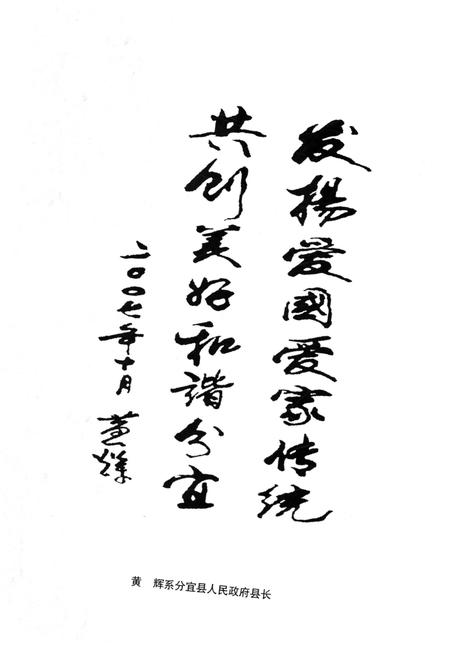 发揚愛國愛家传统
共创美好和谐分宜
二〇〇七年十月 黄辉
黄 辉系分宜县人民政府县长